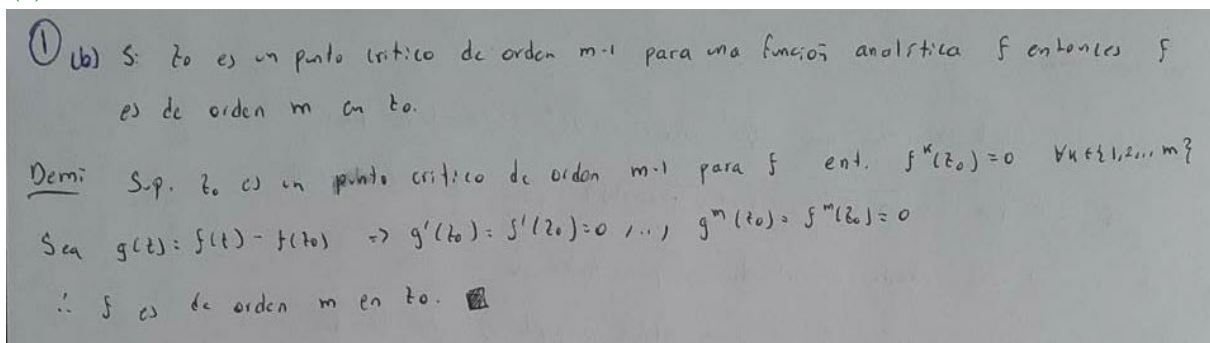 ① (b) Si z₀ es un punto critico de orden m-1 para una función analítica f entonces f
es de orden m en z₀.
Dem: Sup. z₀ es un punto critico de orden m-1 para f ent. fᵏ(z₀) = 0 ∀k∈{1,2,... m}
Sea g(z) = f(z) - f(z₀) => g'(z₀) = f'(z₀) = 0 , .., gᵐ(z₀) = fᵐ(z₀) = 0
∴ f es de orden m en z₀.